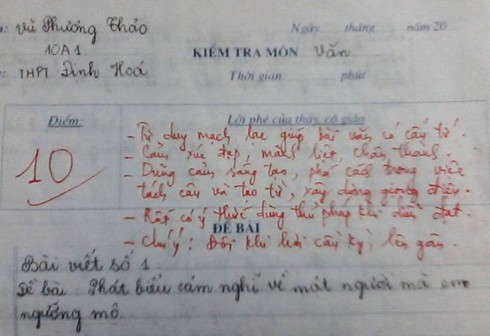 : Vũ Phương Thảo Ngày tháng năm 20
10A1 KIỂM TRA MÔN Văn
: THPT Định Hoá Thời gian phút
Điểm: Lời phê của thầy, cô giáo
10
- Tư duy mạch lạc giúp bài văn có cấu tứ.
- Cảm xúc đẹp, mãnh liệt, chân thành.
- Dũng cảm, sáng tạo, phá cách trong việc
tách câu và tạo từ, xây dựng giọng điệu.
- Rất có ý thức dùng thủ pháp khi diễn đạt.
ĐỀ BÀI
- Chú ý: Đôi khi hơi cầu kỳ, lên gân.
Bài viết số 1
Đề bài Phát biểu cảm nghĩ về một người mà em
ngưỡng mộ.